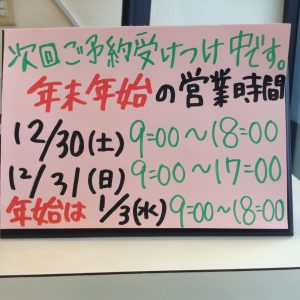 次回ご予約受けつけ中です。
年末年始の営業時間
12/30(土)9:00〜18:00
12/31(日)9:00〜17:00
年始は1/3(水)9:00〜18:00